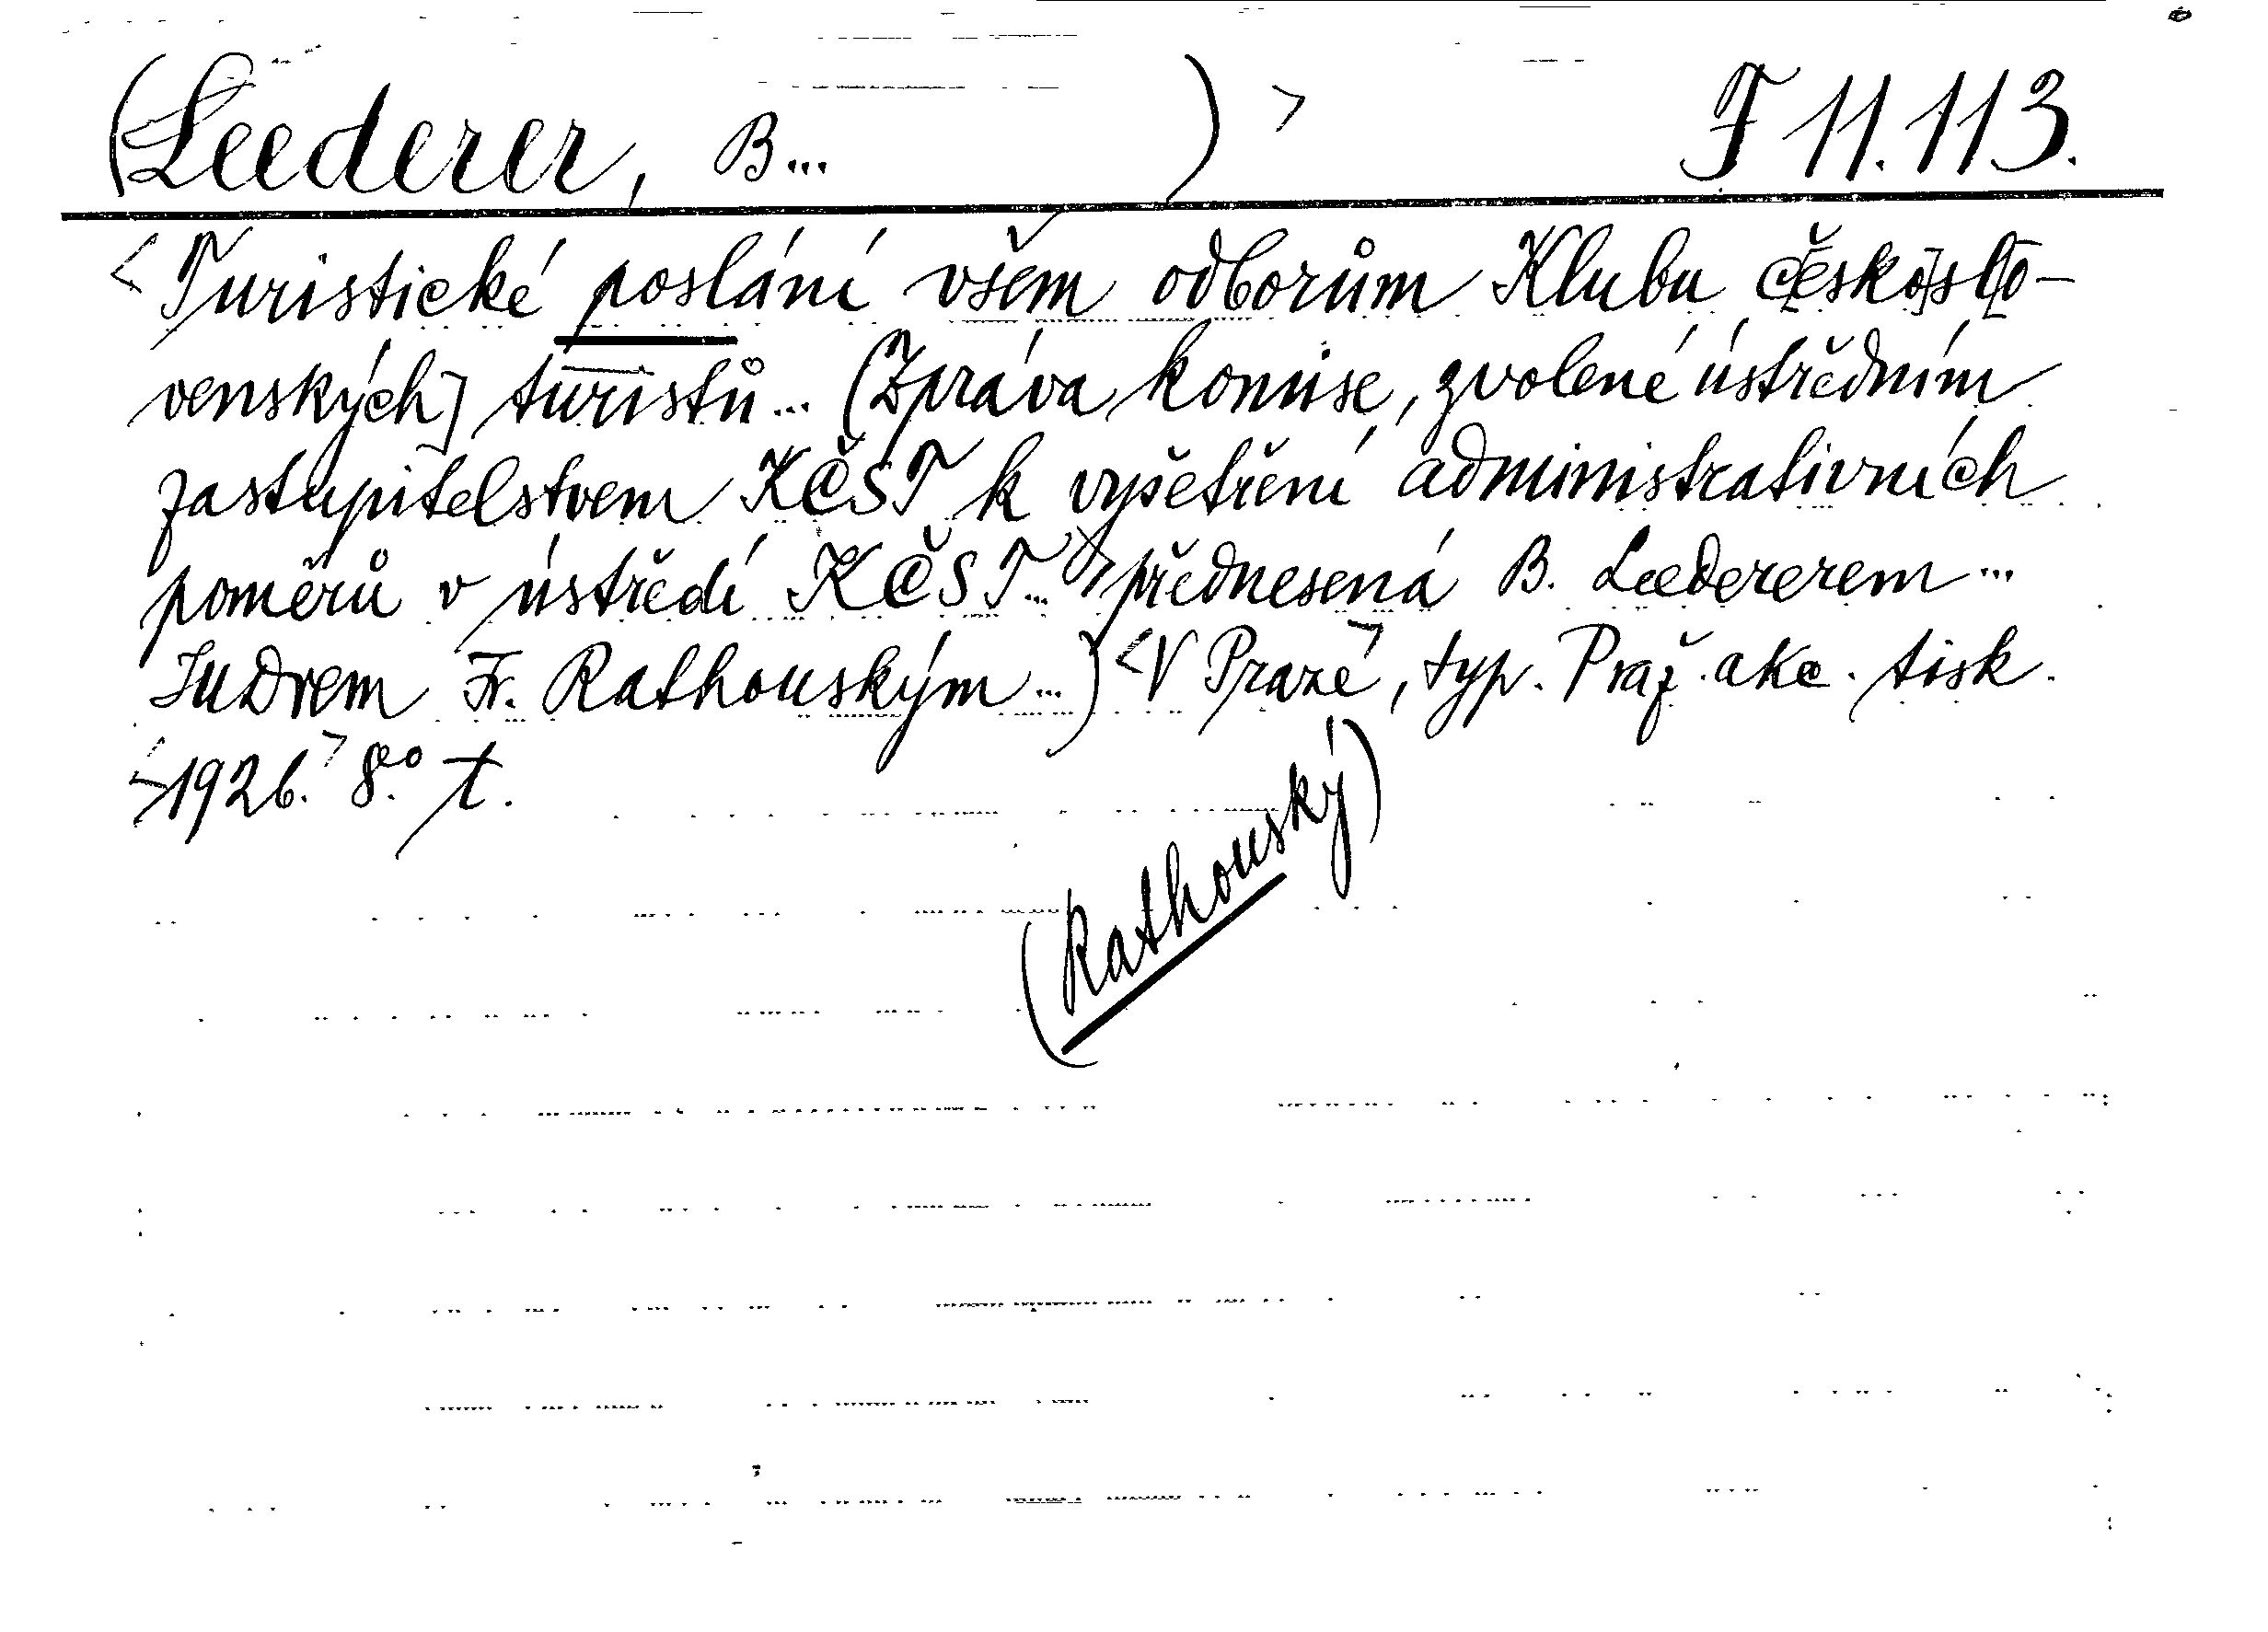 (Leederer, B... )> F 11.113.
<Turistické poslání všem odborům Klubu č[esko]slo-
venských] turistů... (Zpráva komise, zvolené ústředním
zastupitelstvem KČST k vyšetření administrativních
poměrů v ústředí KČST...> přednesená B. Leedererem...
JuDrem Fr. Rathouským...) <V Praze>, typ. Praž. akc. tisk.
<1926.> 8.° t.
(Rathouský)